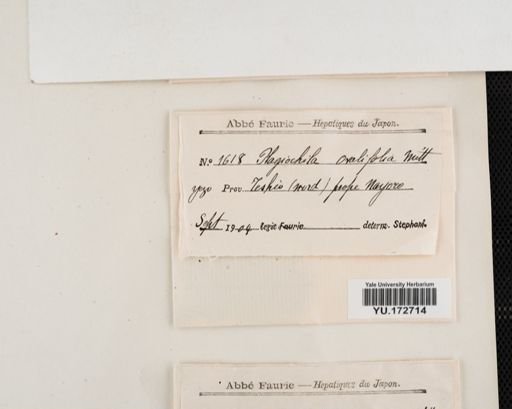 Abbé Faurie — Hepatiques du Japon.
No. 1618 Plagiochila ovalifolia Mitt
yezo Prov. Teshio (nord) prope Nayoro
Sept 1904 legit Faurie determ. Stephani.
Yale University Herbarium
YU.172714
Abbé Faurie — Hepatiques du Japon.